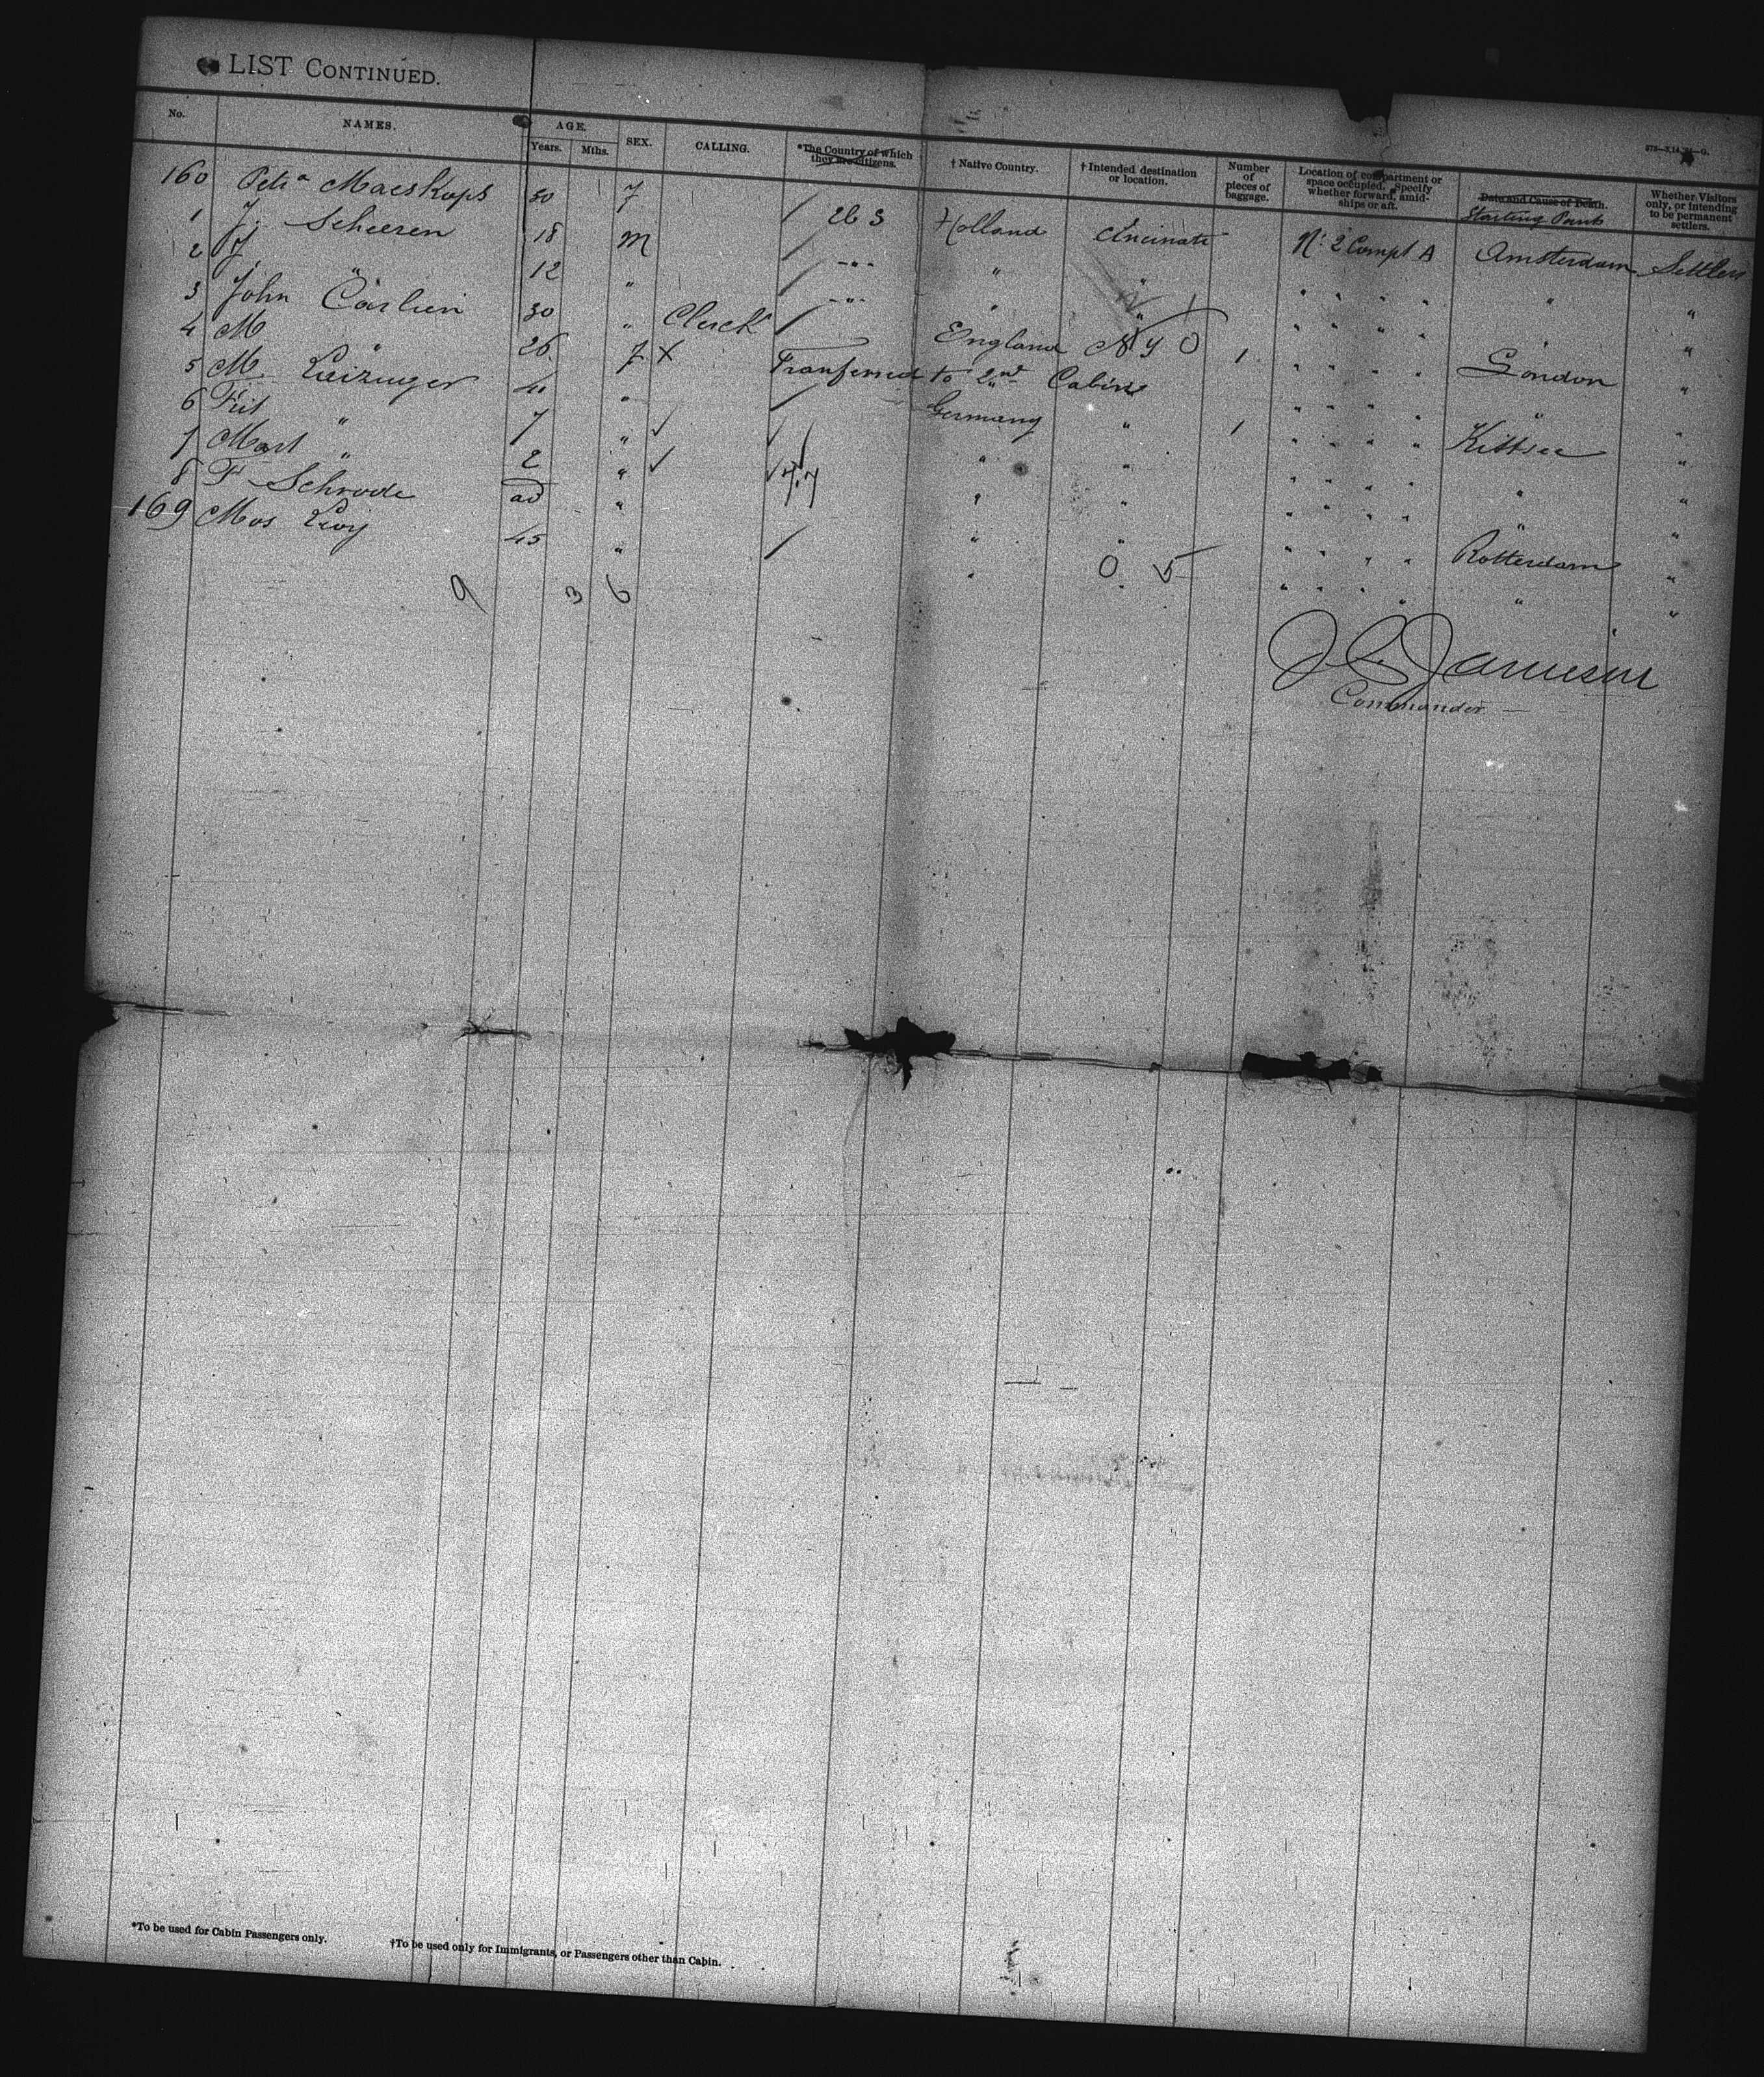 LIST CONTINUED.
No. NAMES. AGE. Years. Mths. SEX. CALLING. *The Country of which they are citizens. † Native Country. † Intended destination or location. Number of pieces of baggage. Location of compartment or space occupied. Specify whether forward, amidships or aft. Date and Cause of Death. Starting Point Whether Visitors only, or intending to be permanent settlers.
160 Petra Maeskops 50 F / 26 3 Holland Cincinati No 2 Compt A Amsterdam Settlers
1 J. Scheeren 18 M / -"- " " " " " " " "
2 J. " 12 " / -"- " " " " " " " "
3 John Carlien 30 " Clerck / England N Y O 1 " " " " London "
4 M " 26 F X Tranferred to 2nd Cabin " " " " " "
5 M. Leizinger 41 " / Germany " 1 " " " " Kittsee "
6 " 7 " √ √ " " " " " " " "
7 Mart " 2 " √ √ " " " " " " " "
8 F Schrode ad " " " " " " " Rotterdam "
169 Mos Levy 45 " / " O. 5 " " " " " "
9 3 6
J C Jamieson
Commander
*To be used for Cabin Passengers only. †To be used only for Immigrants, or Passengers other than Cabin.